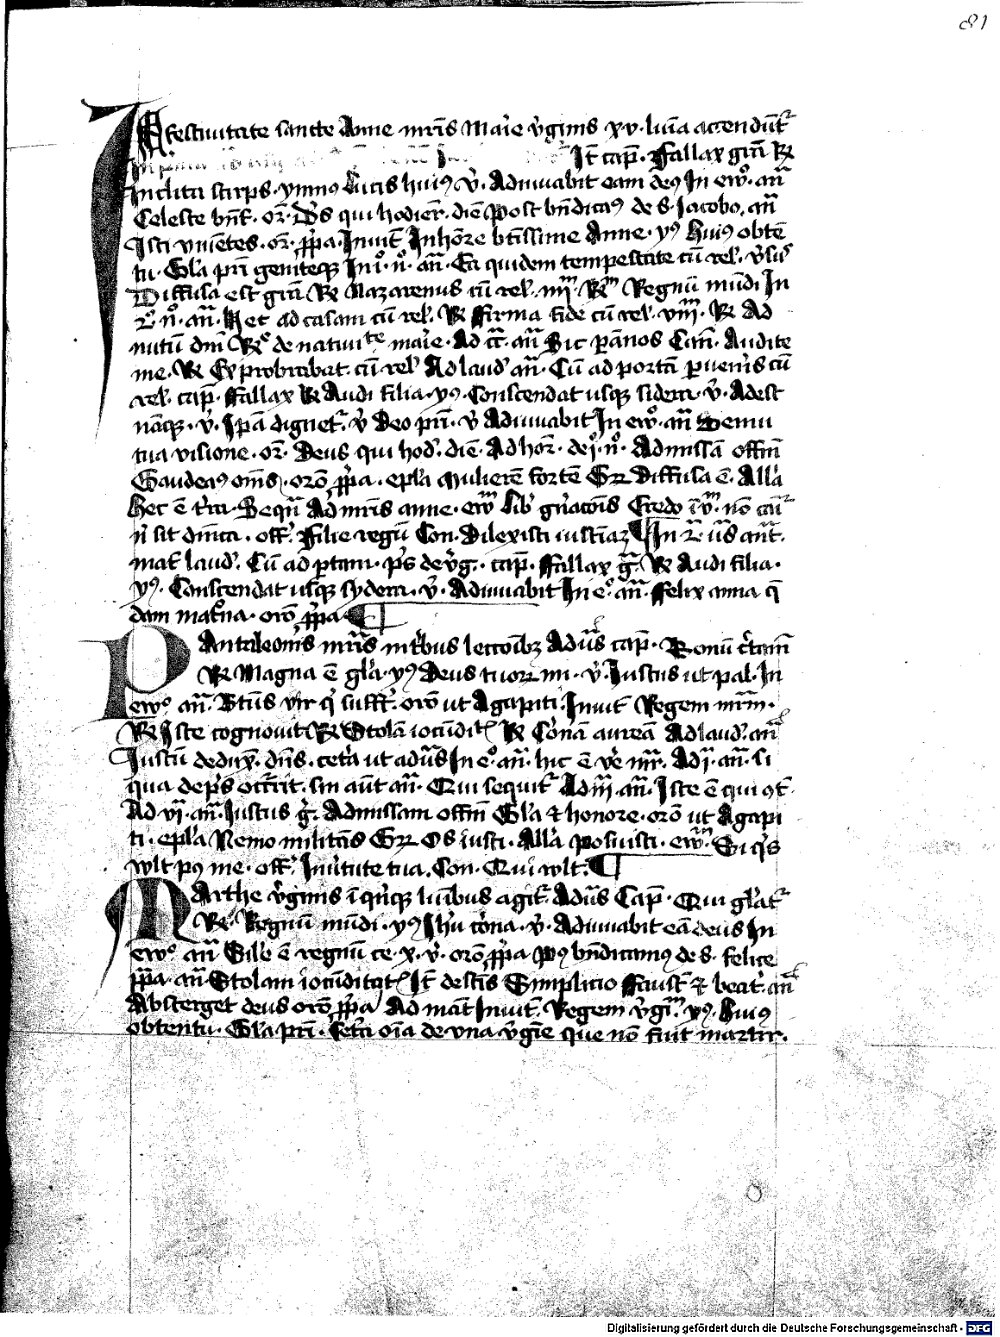 81
In festiuitate sancte Anne mr̄is Marie v̓ginis xv lūia accendūt᷑
It̄ cap̄. Fallax grā R͛
Inclita stirps. ymnus Lucis huius v̓. Adiuuabit eam deꝰ In ew̓o. an̄
Celeste bn̄t. or̄. D̄s qui hodier̄. diē Post bn̄dictꝰ de s. Iacobo. an̄
Isti viuētes. or̄. p̄p̄a. Inuit̄ In hōre bt̄issime Anne. yꝰ Huiꝰ obtē
tu. Gl̄a pr̄i geniteqꝫ In i͛ n͛. an̄. Ea quidem tempestate cū rel̓. v̓suſ
Diffusa est grā R͛ Nazarenus cū rel̓. iiii R͛m Regnū mūdi In
2͛ n͛. an̄. Hec ad casam cū rel̓. R͛ Firma fide cū rel̓. viii. R͛ Ad
nutū dn̄i R͛ de natiuitate marie. Ad c̄c̄. an̄ Sic p̄annos Can̄. Audite
me. R͛ Exprobrabat cū rel̓. Ad laud̓ an̄. Cū ad portā ꝑuenis cū
rel̓. cap̄. Fallax R͛ Audi filia. yꝰ Conscendat usqꝫ sidera. v̓. Adest
nāqꝫ. v̓. Ipā dignet᷑. v̓ Deo pr̄i. v̓ Adiuuabit In ew̓o. an̄ Demū
tua visione. or̄. Deus qui hod̓. diē. Ad hor̄. de i͛. n͛. Ad missā offm̄
Gaudeaꝰ om̄s. orō p̄p̄a. ep̄la Mulierē fortē Gr̄ Diffusa ē. All̄a
Hec ē v̓a. Sequ᷑ Ad mr̄is anne. ew̄ Lib̓ gn̄acōis Credo
n̓ sit dn̄ica. off̓. Filie regū Con. Dilexisti iusticiaꝫ ¶ In 2͛ v̄s an̄t.
mat̄ laud̓. Cū ad portam. p̄s de v̓g̓. cap̄. Fallax g̓. R͛ Audi filia.
yꝰ. Conscendat usqꝫ sydera. v̓. Adiuuabit In e͛. an̄. Felix anna q̄
dam matrona. orō p̄p̄a. ¶
Pantaleonis mr̄is in t̓bus lectōibꝫ Ad v̄s cap̄. Bonū c̓tam̄
R͛ Magna ē gl̄a. yꝰ Deus tuoꝝ mi. v̓. Iustus ut pal. In
ew̓o an̄. Bt̄us vir q̄ suff̓. orō ut Agapiti. Inuit̄ Regem mr̄m.
R͛ Iste cognouit R͛ Stolā iocūdit᷑ R͛ Corōnā aureā Ad laud̓ an̄
Iustū deduxꝫ. dn̄s. cet̓a ut ad v̄s In e͛. an̄. hic ē v̓e mr̄. Ad i͛. an̄. Si
qua de p̄s occ̓rit. sin aut̄ an̄. Qui sequit᷑ Ad iii. an̄. Iste ē qui
Ad vi. an̄. Iustus g̓. Ad missam offm̄ Gl̄a ⁊ honore. orō ut Agapi
ti. ep̄la Nemo militās Gr̄ Os iusti. All̄a Posuisti. ew̄. Si q̓s
wlt pꝰ me. off̓. In v̓tute tua. Con. Qui wlt. ¶
Marthe v̓ginis ī q̓nqꝫ lūibus agit᷑. Ad v̄s Cap̄. Qui gl̄at᷑
R͛. Regnū mūdi. yꝰ Ih̄u corōna. v̓. Adiuuabit eā deus In
ew̓o an̄ Sil̓e ē regnū ce. x. v̓. orō p̄p̄a Pꝰ bn̄dicamꝰ de s. felice
p̄p̄a. an̄ Stolam iocūditat᷑ It̄ de sc̄is Simplicio Faust̄ ⁊ beat̓. an̄
Absterget deus orō p̄p̄a Ad mat̄ Inuit̄. Regem v̓gi. yꝰ. Huiꝰ
obtentu. Gl̄a pr̄i. Cet̓a oīa de vna v̓gīe que nō fuit martir.
Digitalisierung gefördert durch die Deutsche Forschungsgemeinschaft - DFG